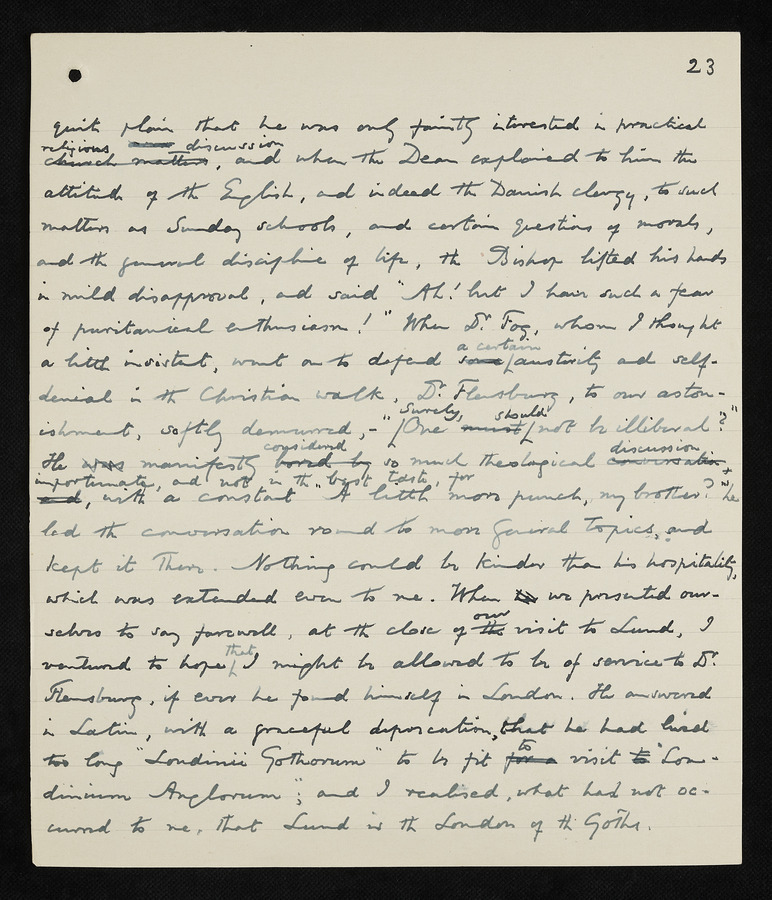 23
quite plain that he was only faintly interested in practical
religious discussion
church matters, and when the Dean explained to him the
attitude of the English, and indeed the Danish clergy, to such
matters as Sunday schools, and certain questions of morals,
and the general discipline of life, the Bishop lifted his hands
in mild disapproval, and said "Ah! but I have such a fear
of puritanical enthusiasm!" When Dr. Fog, whom I thought
a certain
a little insistent, went on to defend some austerity and self-
denial in the Christian walk, Dr. Flensburg, to our aston-
Surely, should
ishment, softly demurred, - "One must not be illiberal?"
considered discussion
He was manifestly bored by so much theological conversation
importunate, and not in the best taste, for
and, with a constant "A little more punch, my brother?" he
led the conversation round to more general topics, and
kept it there. Nothing could be kinder than his hospitality,
which was extended even to me. When we presented our-
our
selves to say farewell, at the close of the visit to Lund, I
that
ventured to hope I might be allowed to be of service to Dr.
Flensburg, if ever he found himself in London. He answered
in Latin, with a graceful deprecation, that he had lived
to
too long "Londinii Gothorum" to be fit for a visit to "Lon-
dinium Anglorum"; and I realised, what had not oc-
curred to me, that Lund is the London of the Goths.